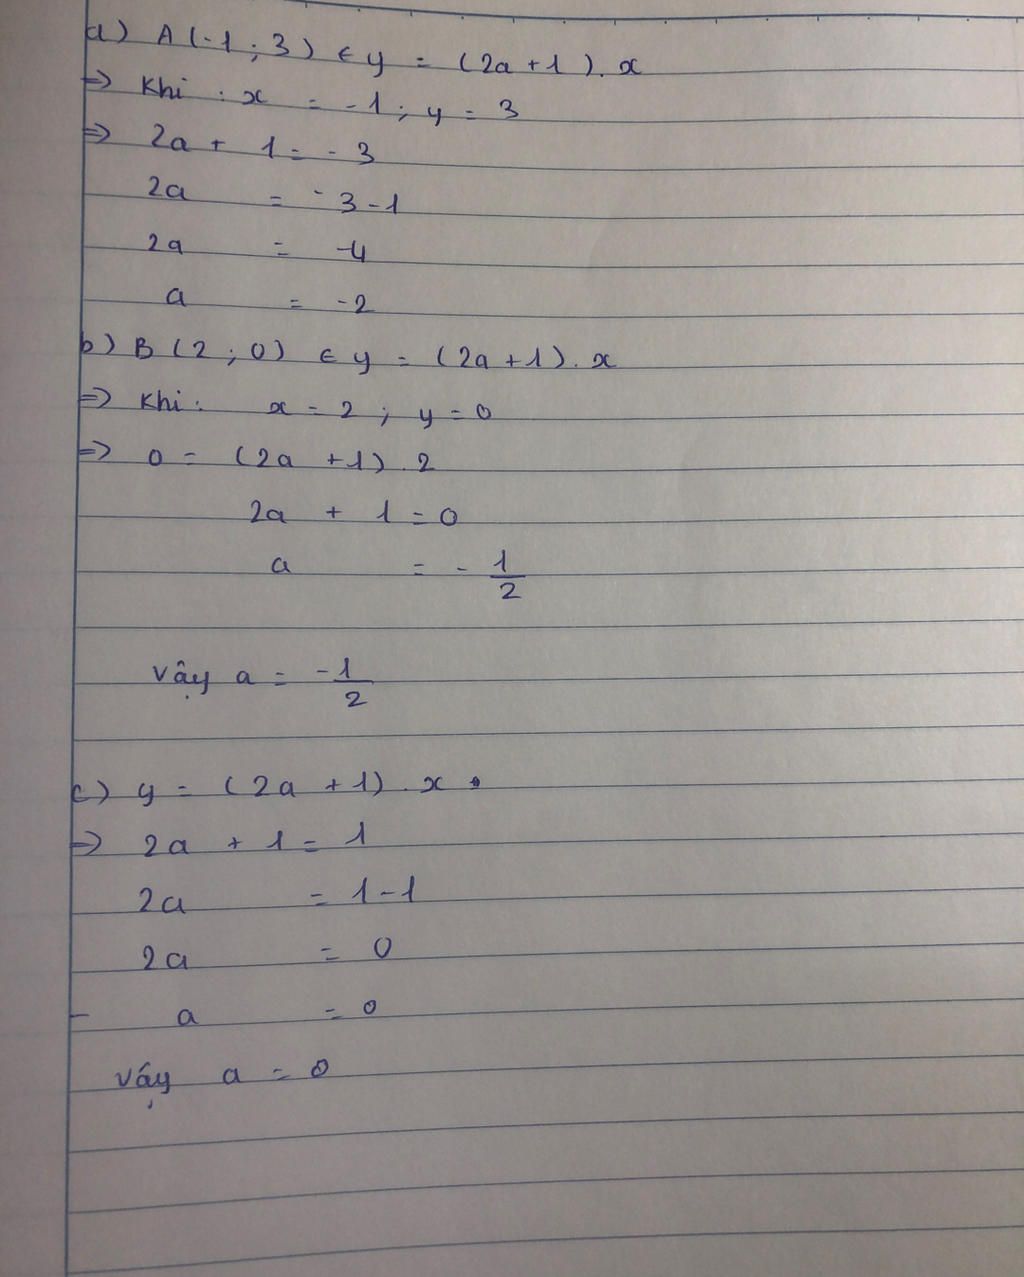 a) A(-1; 3) ∈ y = (2a+1).x
=> Khi : x = -1; y = 3
=> 2a + 1 = -3
2a = -3-1
2a = -4
a = -2
b) B(2; 0) ∈ y = (2a+1).x
=> Khi: x = 2; y = 0
=> 0 = (2a +1).2
2a + 1 = 0
a = - 1/2
Vậy a = -1/2
c) y = (2a +1).x
=> 2a + 1 = 1
2a = 1-1
2a = 0
a = 0
Vậy a = 0